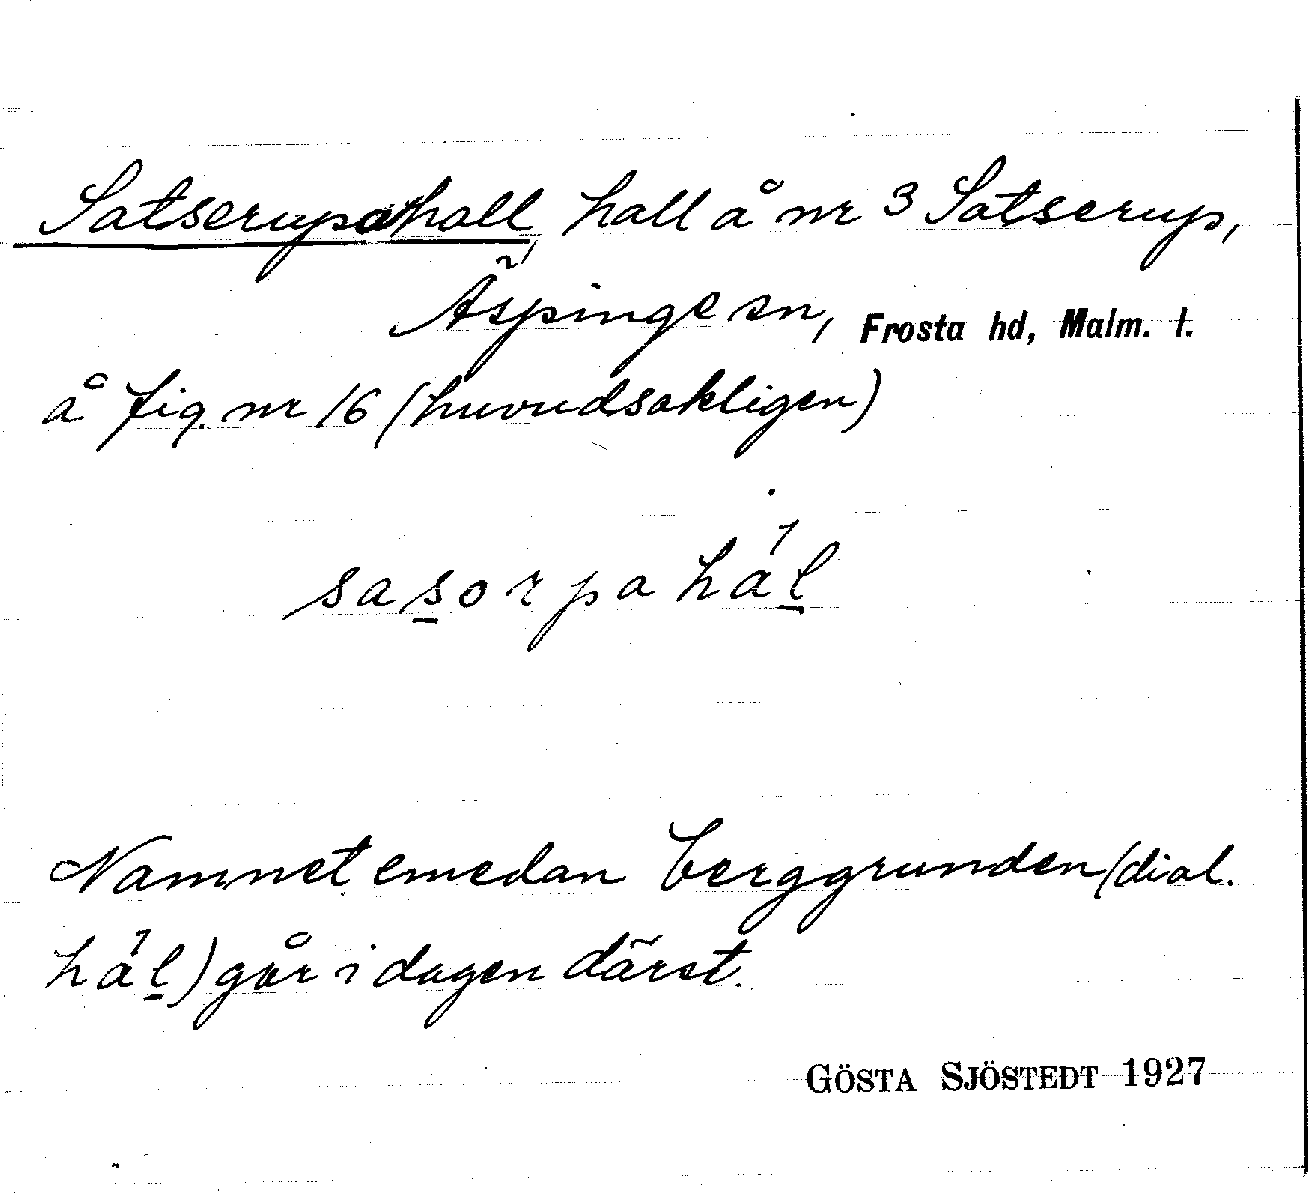 Satserupahall, hall å nr 3 Satserup,
Äspinge sn, Frosta hd, Malm. l.
å fig. nr 16 (huvudsakligen)
sasorpa hál
Namnet emedan berggrunden (dial.
hál) går i dagen därst.
GÖSTA SJÖSTEDT 1927